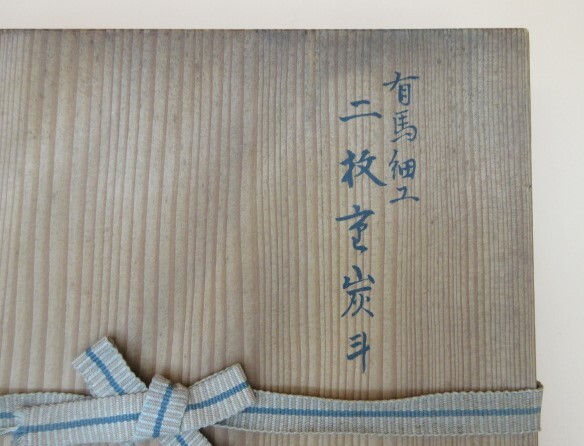 有馬細工
二枚重炭斗